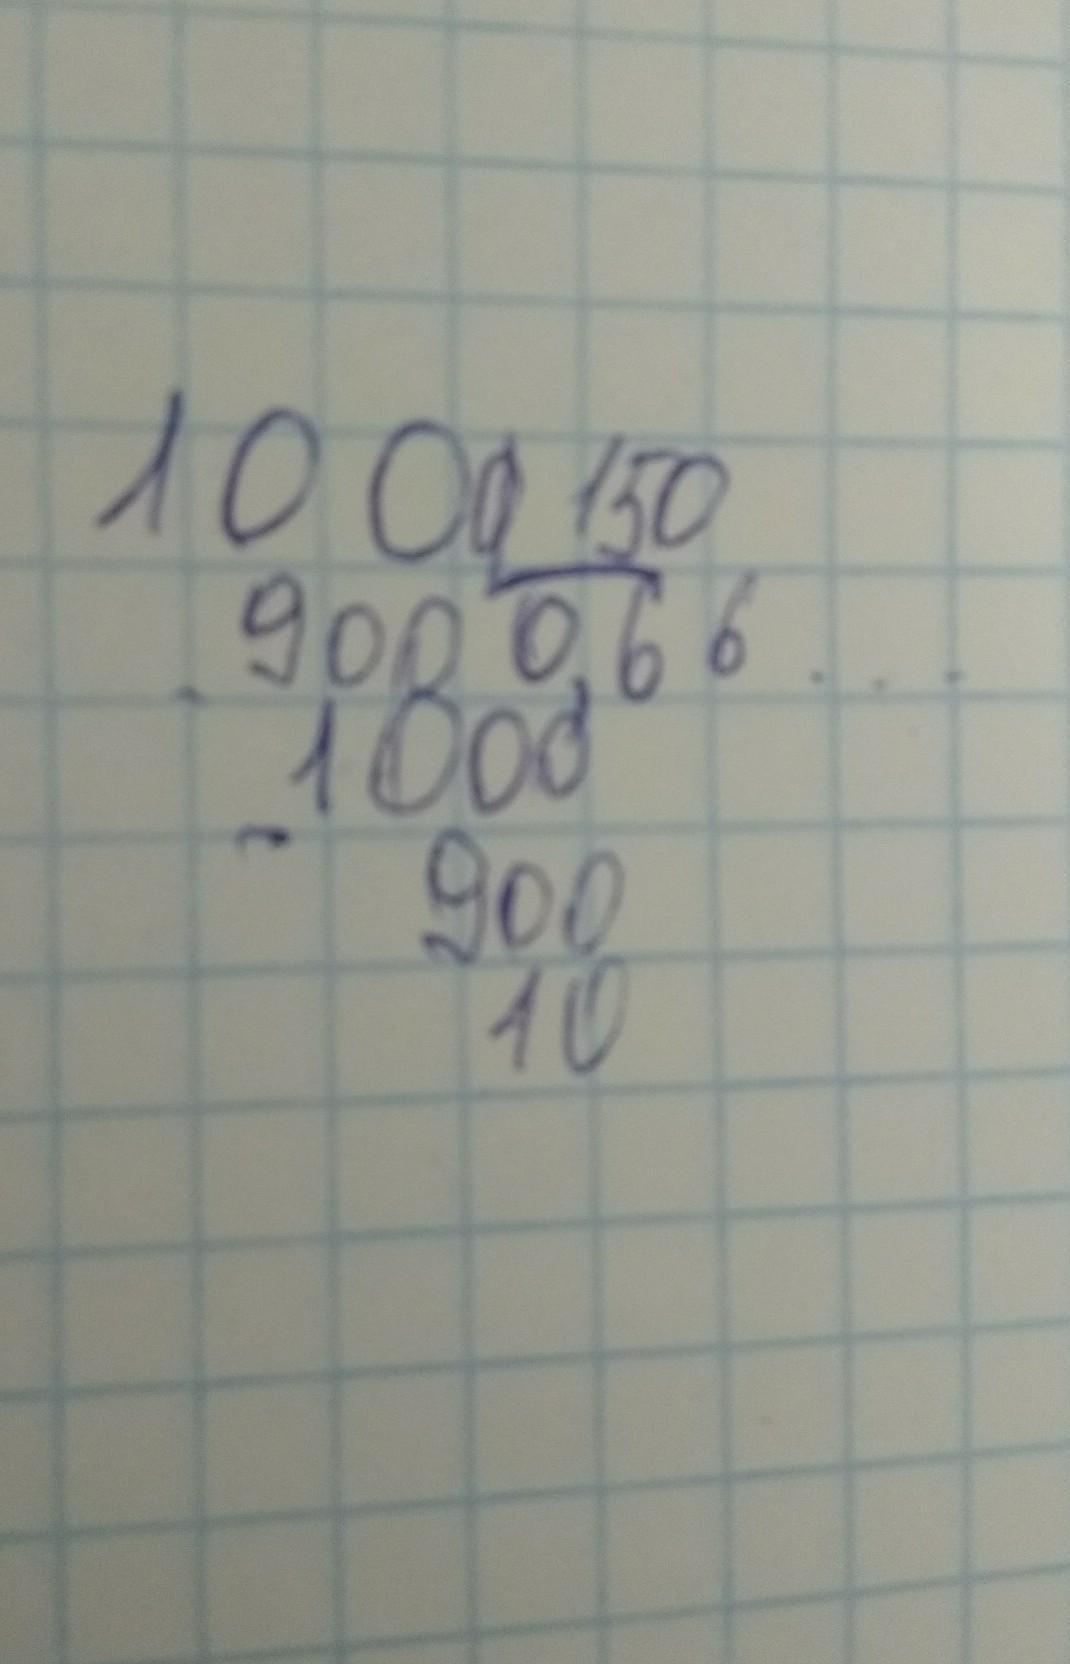 1000 150
900 0,66...
1000
- 900
10